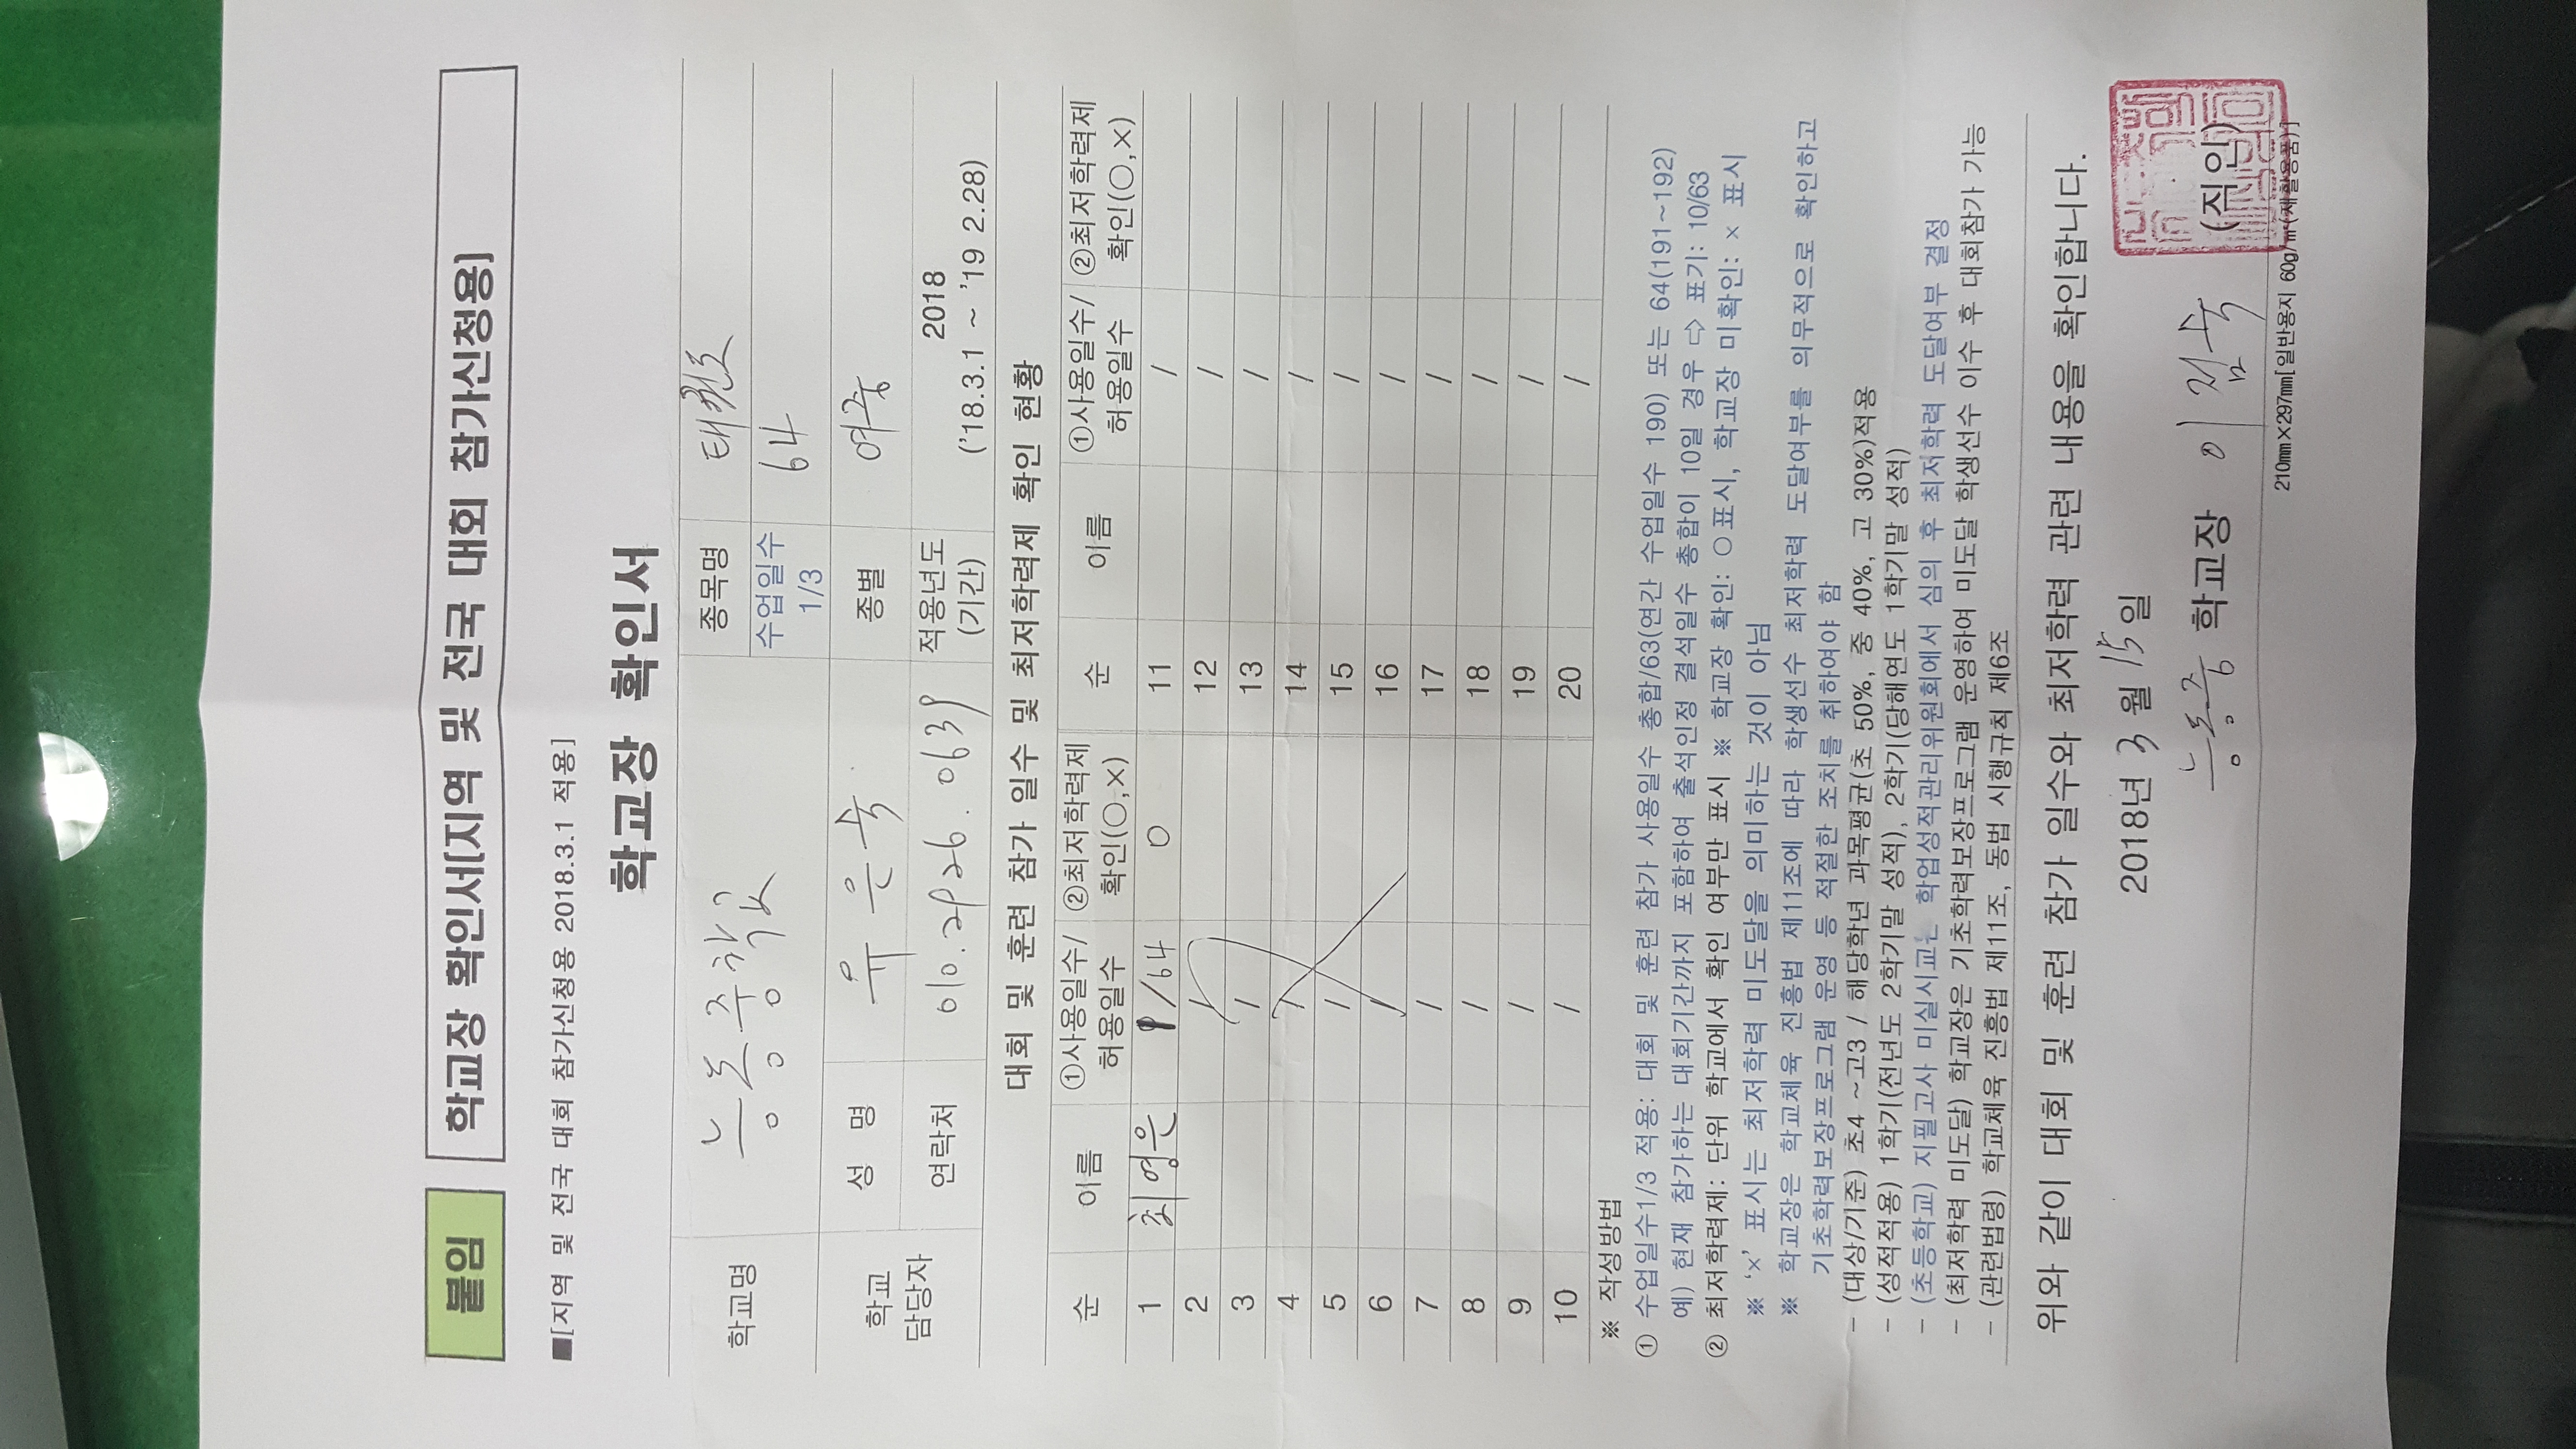 붙임 학교장 확인서[지역 및 전국 대회 참가신청용]
■[지역 및 전국 대회 참가신청용 2018.3.1 적용]
학교장 확인서
학교명 능동중학교 종목명 태권도
수업일수 1/3 64
학교 담당자 성 명 유은숙 종별 여중
연락처 010.2926.0639 적용년도 (기간) 2018 ('18.3.1 ~ '19 2.28)
대회 및 훈련 참가 일수 및 최저학력제 확인 현황
순 이름 ①사용일수/허용일수 ②최저학력제 확인(○,×) 순 이름 ①사용일수/허용일수 ②최저학력제 확인(○,×)
1 최영은 /64 ○ 11 /
2 / 12 /
3 / 13 /
4 / 14 /
5 / 15 /
6 / 16 /
7 / 17 /
8 / 18 /
9 / 19 /
10 / 20 /
※ 작성방법
① 수업일수1/3 적용: 대회 및 훈련 참가 사용일수 총합/63(연간 수업일수 190) 또는 64(191~192)
예) 현재 참가하는 대회기간까지 포함하여 출석인정 결석일수 총합이 10일 경우 ⇨ 표기: 10/63
② 최저학력제: 단위 학교에서 확인 여부만 표시 ※ 학교장 확인: ○표시, 학교장 미확인: × 표시
※ '×' 표시는 최저학력 미도달을 의미하는 것이 아님
※ 학교장은 학교체육 진흥법 제11조에 따라 학생선수 최저학력 도달여부를 의무적으로 확인하고
기초학력보장프로그램 운영 등 적절한 조치를 취하여야 함
- (대상/기준) 초4 ~고3 / 해당학년 과목평균(초 50%, 중 40%, 고 30%)적용
- (성적적용) 1학기(전년도 2학기말 성적), 2학기(당해연도 1학기말 성적)
- (초등학교) 지필고사 미실시교는 학업성적관리위원회에서 심의 후 최저학력 도달여부 결정
- (최저학력 미도달) 학교장은 기초학력보장프로그램 운영하여 미도달 학생선수 이수 후 대회참가 가능
- (관련법령) 학교체육 진흥법 제11조, 동법 시행규칙 제6조
위와 같이 대회 및 훈련 참가 일수와 최저학력 관련 내용을 확인합니다.
2018년 3월 15일
능동중 학교장 이점숙 (직인)
210mm×297mm[일반용지 60g/㎡(재활용품)]